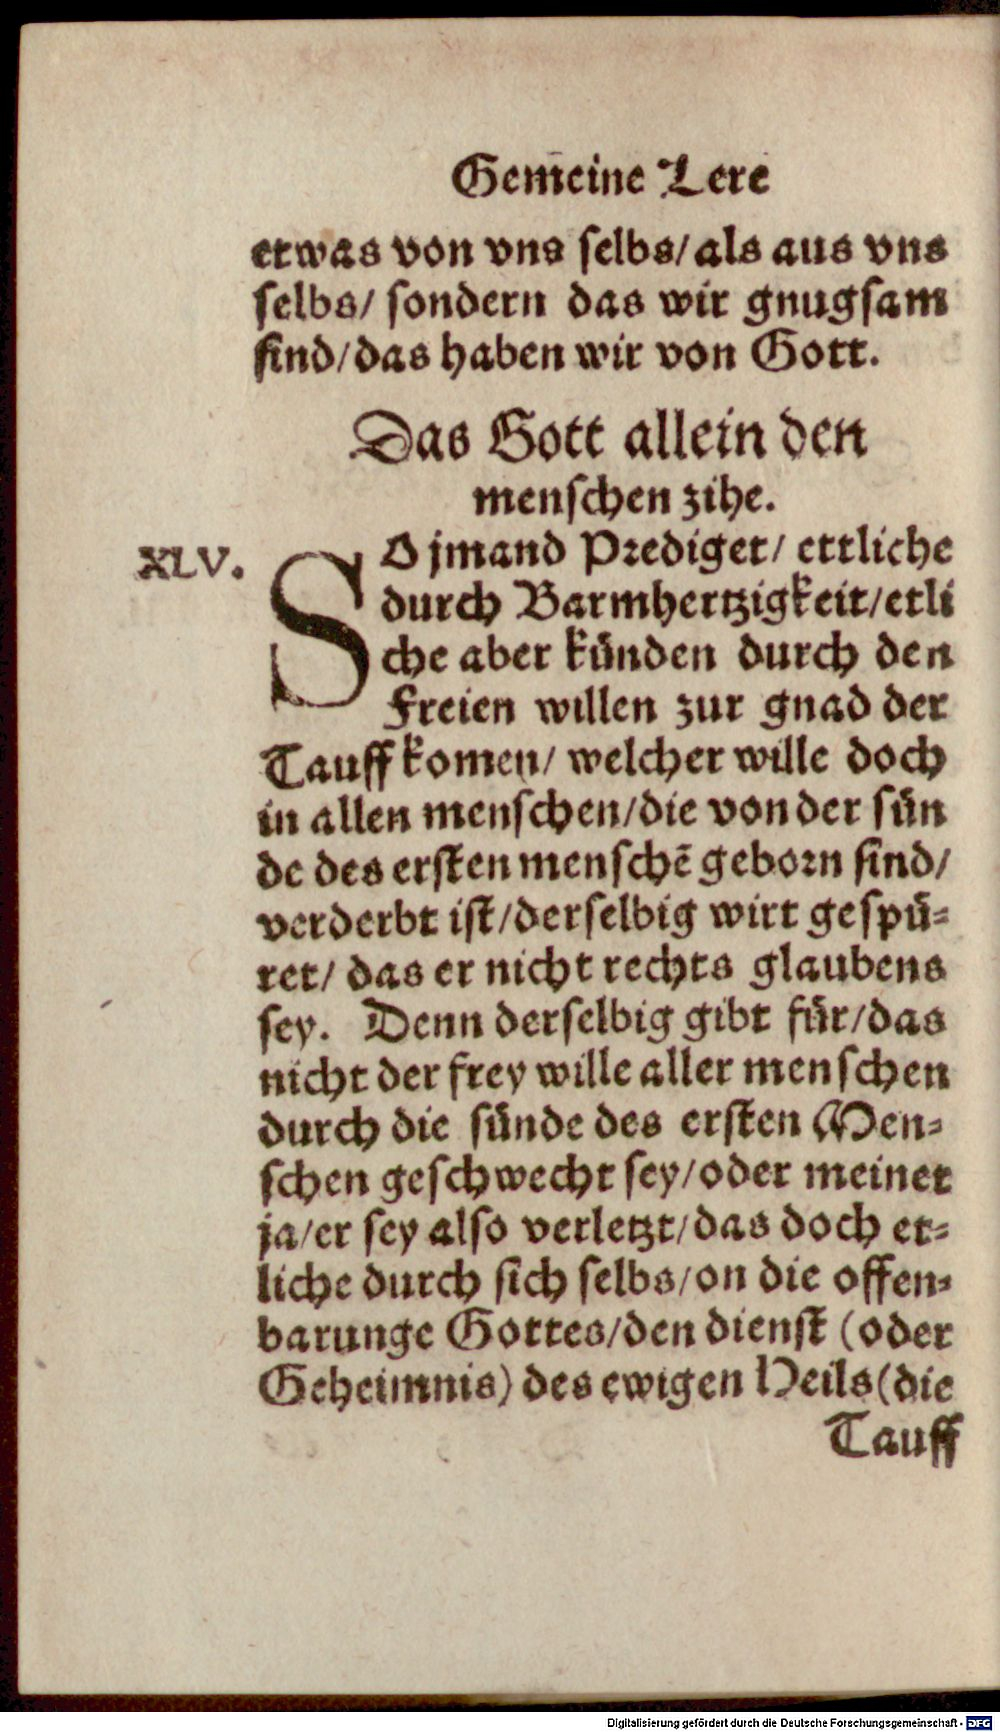 Gemeine Lere
etwas von vns selbs/als aus vns
selbs/ sondern das wir gnugsam
sind/das haben wir von Gott.
Das Gott allein den
menschen zihe.
XLV.
SO jmand Prediget/ ettliche
durch Barmhertzigkeit/etli
che aber künden durch den
Freien willen zur gnad der
Tauff komen/ welcher wille doch
in allen menschen/die von der sün
de des ersten menschē geborn sind/
verderbt ist/derselbig wirt gespü=
ret/ das er nicht rechts glaubens
sey. Denn derselbig gibt für/das
nicht der frey wille aller menschen
durch die sünde des ersten Men=
schen geschwecht sey/oder meinet
ja/er sey also verletzt/das doch et=
liche durch sich selbs/on die offen=
barunge Gottes/den dienst (oder
Geheimnis) des ewigen Heils(die
Tauff
Digitalisierung gefördert durch die Deutsche Forschungsgemeinschaft - DFG